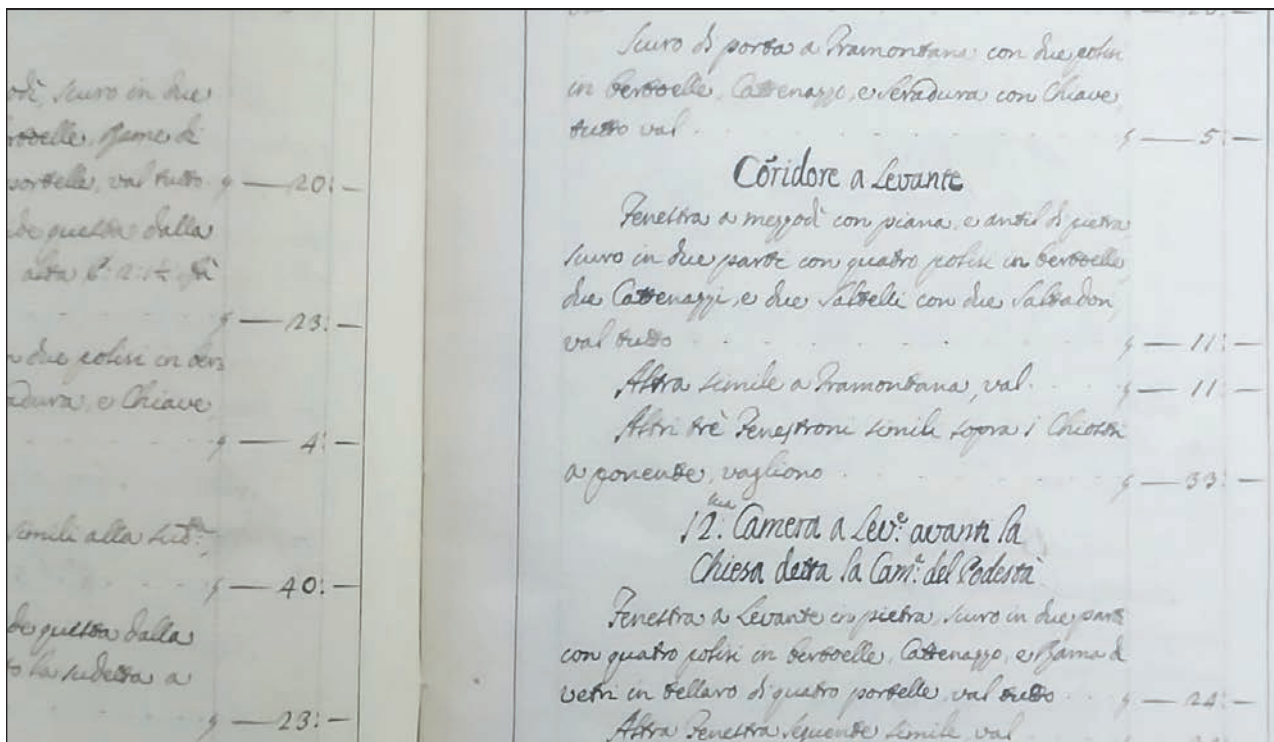 scuro in due
val tutto § — 20: —
questa dalla
alta
§ — 23: —
due polisi in
e Chiave
§ — 4: —
simili alla sud.ta
§ — 40: —
questa dalla
la sudetta a
§ — 23: —
Scuro di porta a Tramontana con due polisi
in bertoelle, Cattenazzo, e Seradura con Chiave,
tutto val § — 5: —
Coridore a Levante
Fenestra a mezzodì con piana, e antil di pietra
scuro in due parti con quatro polisi in bertoelle
due Cattenazzi, e due Saltelli con due Saltadori,
val tutto § — 11: —
Altra simile a Tramontana, val § — 11: —
Altri trè Fenestroni simili sopra i Chiostri
a ponente, vagliono § — 33: —
12.ma Camera a Lev.e avanti la
Chiesa detta la Cam.a del Podestà
Fenestra a Levante in pietra, scuro in due parti
con quatro polisi in bertoelle, Cattenazzo, e Rama di
vetri in tellaro di quatro portelle, val tutto § — 24: —
Altra Fenestra seguente simile, val